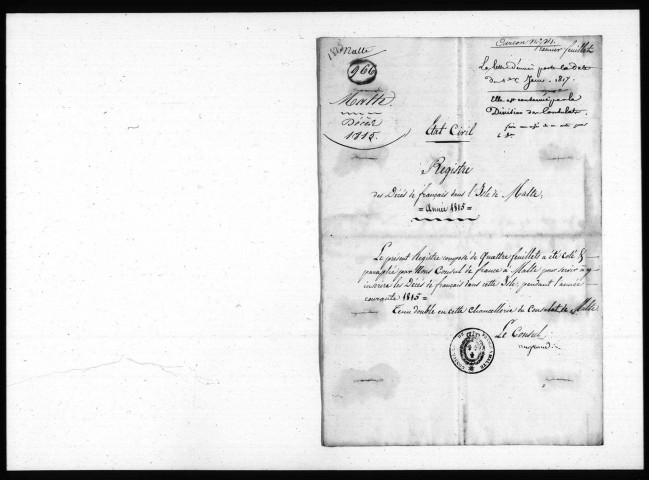 Carton N.° 21.
Premier feuillet
Malte
966
Malte
Décès
1815.
La lettre d'envoi porte la date
du 1.er Janv. 1817.
Elle est conservée par la
Division des Consulats.
Etat Civil
Registre
des Décès de français dans l'Isle de Malte,
= Année 1815 =
Le présent Registre composé de Quattre feuillets a été coté &
paraphé par Nous Consul de france a Malte pour servir a y
inscrire les Décès de français dans cette Isle, pendant l'année
courante 1815 =
Tenu double en cette Chancellerie du Consulat de Malte
Le Consul